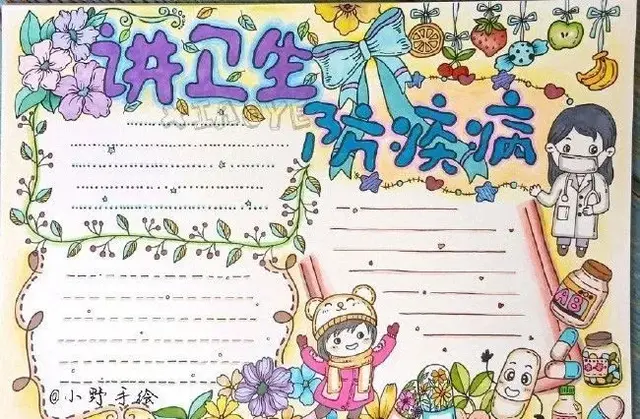 讲卫生
防疾病
XIAOYE
AB
@小野手绘